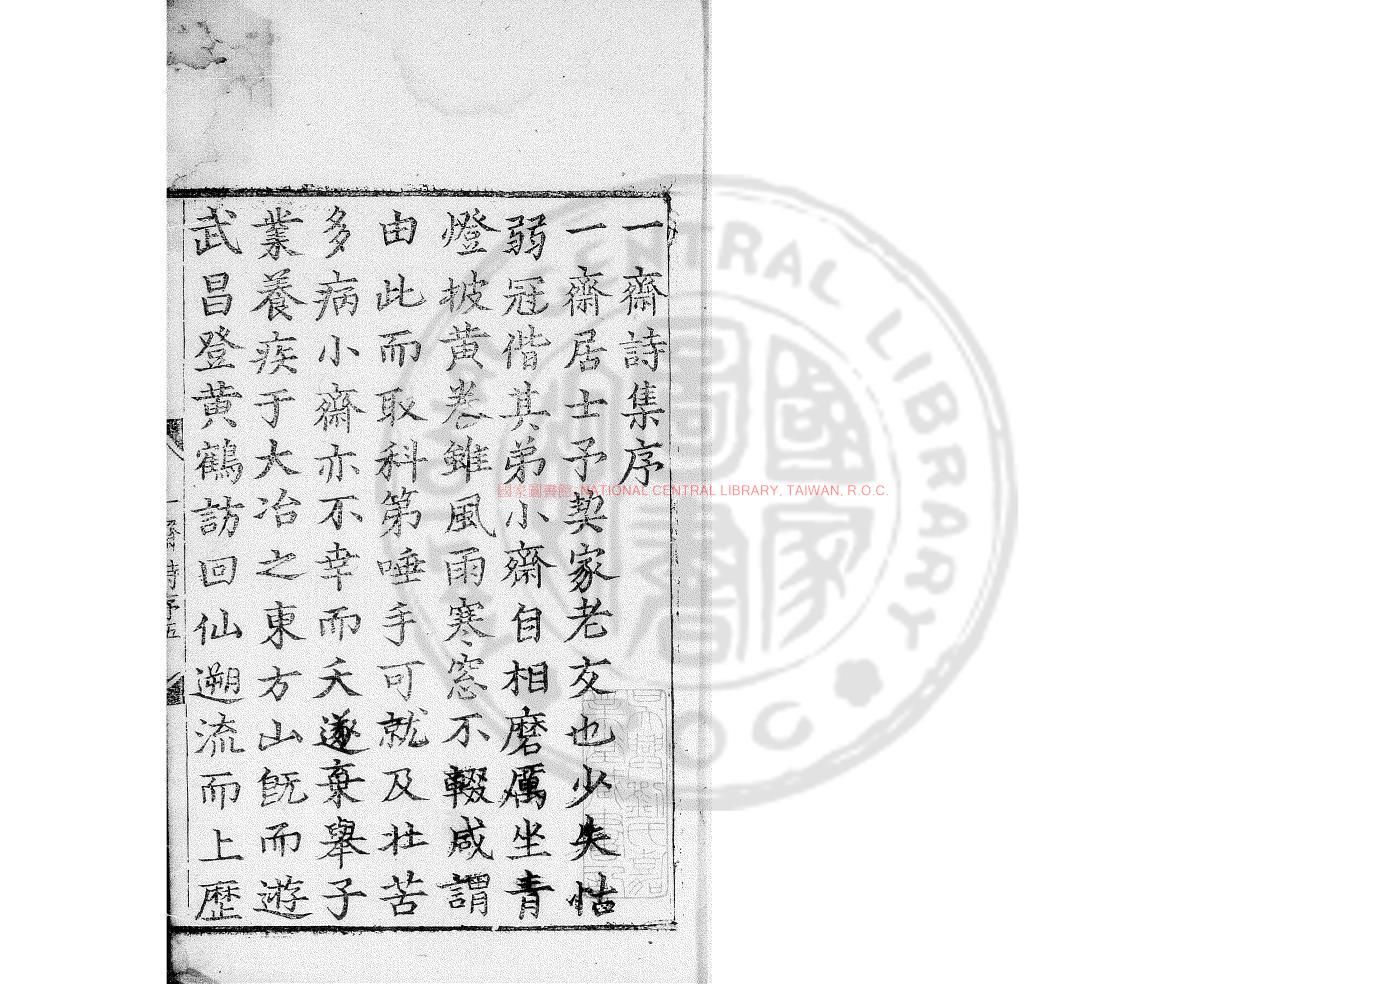 一齋詩集序
一齋居士予契家老友也少失怙
弱冠偕其弟小齋自相磨厲坐青
燈披黄卷雖風雨寒窓不輟咸謂
由此而取科第唾手可就及壯苦
多病小齋亦不幸而夭遂棄舉子
業養疾于大冶之東方山旣而遊
武昌登黄鶴訪回仙遡流而上歷
一齋詩序
國家圖書館 NATIONAL CENTRAL LIBRARY, TAIWAN, R.O.C.
CENTRAL LIBRARY
R.O.C.
國家圖書
吳興劉氏嘉
業堂藏書印